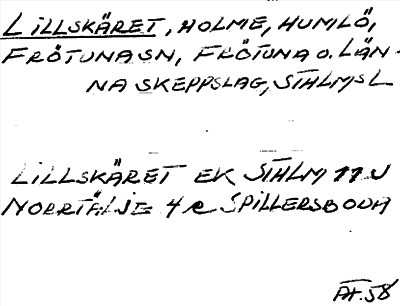 LILLSKÄRET, HOLME, HUMLÖ,
FRÖTUNA SN, FRÖTUNA O. LÄN-
NA SKEPPSLAG, STHLMS L
LILLSKÄRET EK STHLM 77 U
NORRTÄLJE 4 e SPILLERSBODA
AT. 58